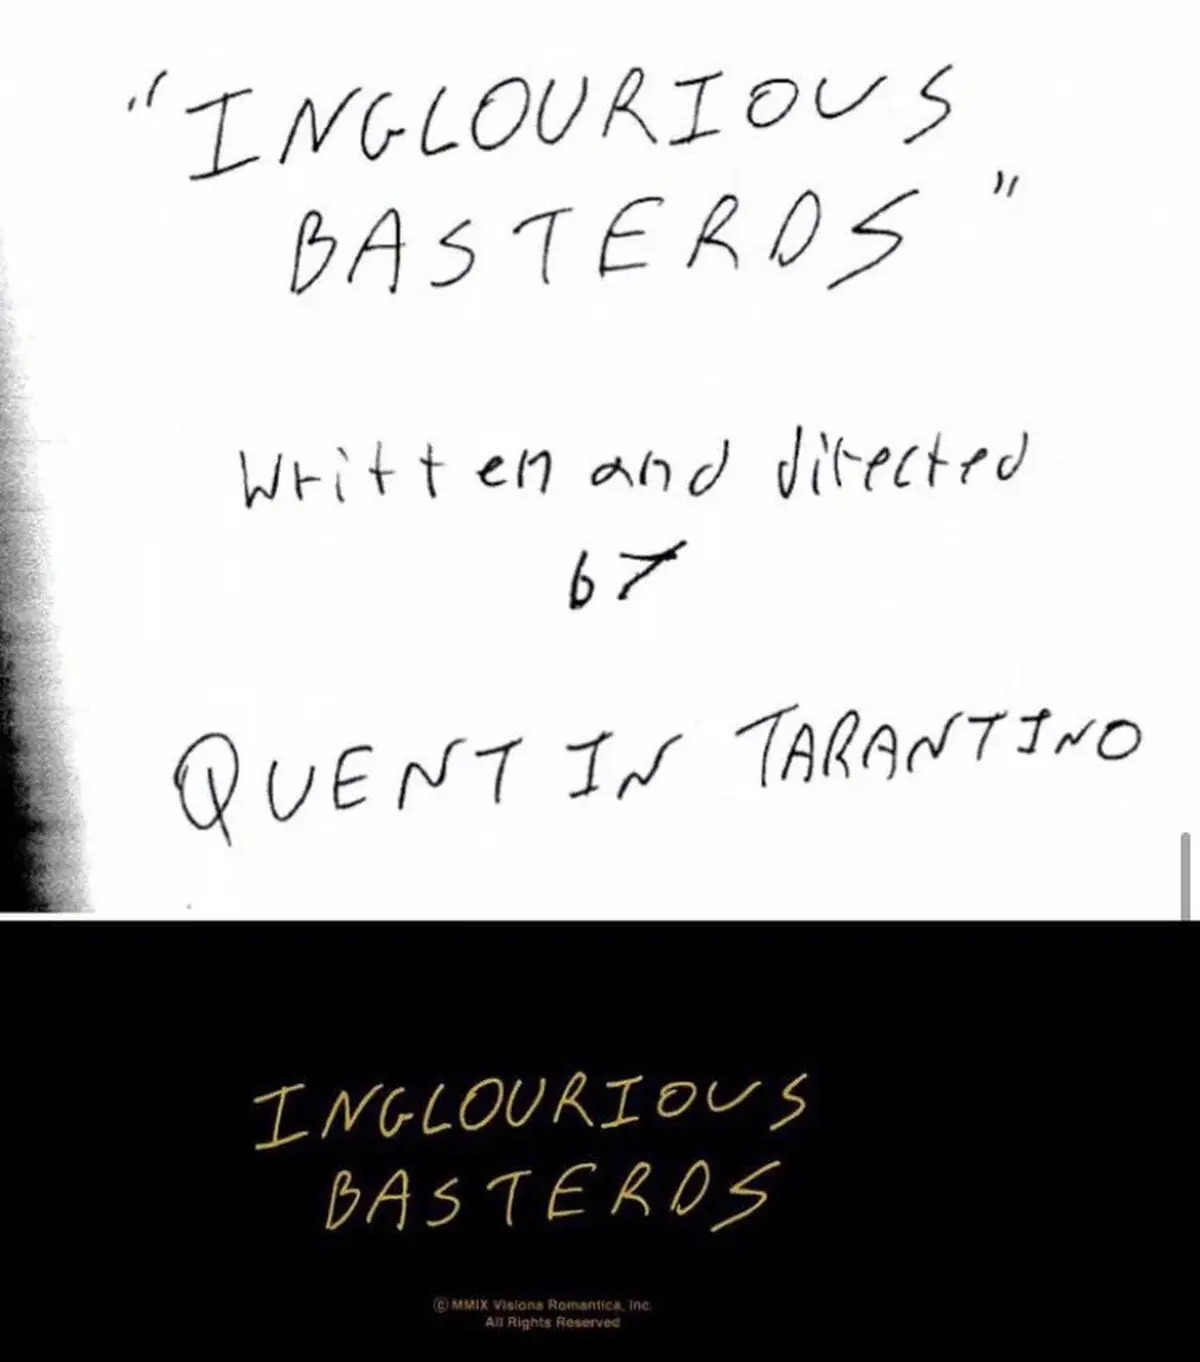 "INGLOURIOUS
BASTERDS"
Written and directed
by
QUENTIN TARANTINO
INGLOURIOUS
BASTERDS
© MMIX Visiona Romantica, Inc.
All Rights Reserved